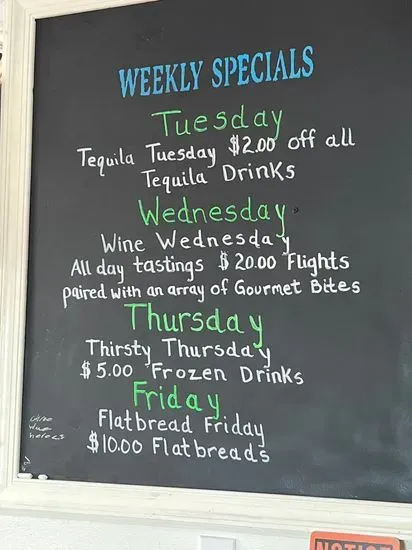 WEEKLY SPECIALS
Tuesday
Tequila Tuesday $2.00 off all
Tequila Drinks
Wednesday
Wine Wednesday
All day tastings $20.00 Flights
paired with an array of Gourmet Bites
Thursday
Thirsty Thursday
$5.00 Frozen Drinks
Friday
Flatbread Friday
$10.00 Flatbreads
NOTICE